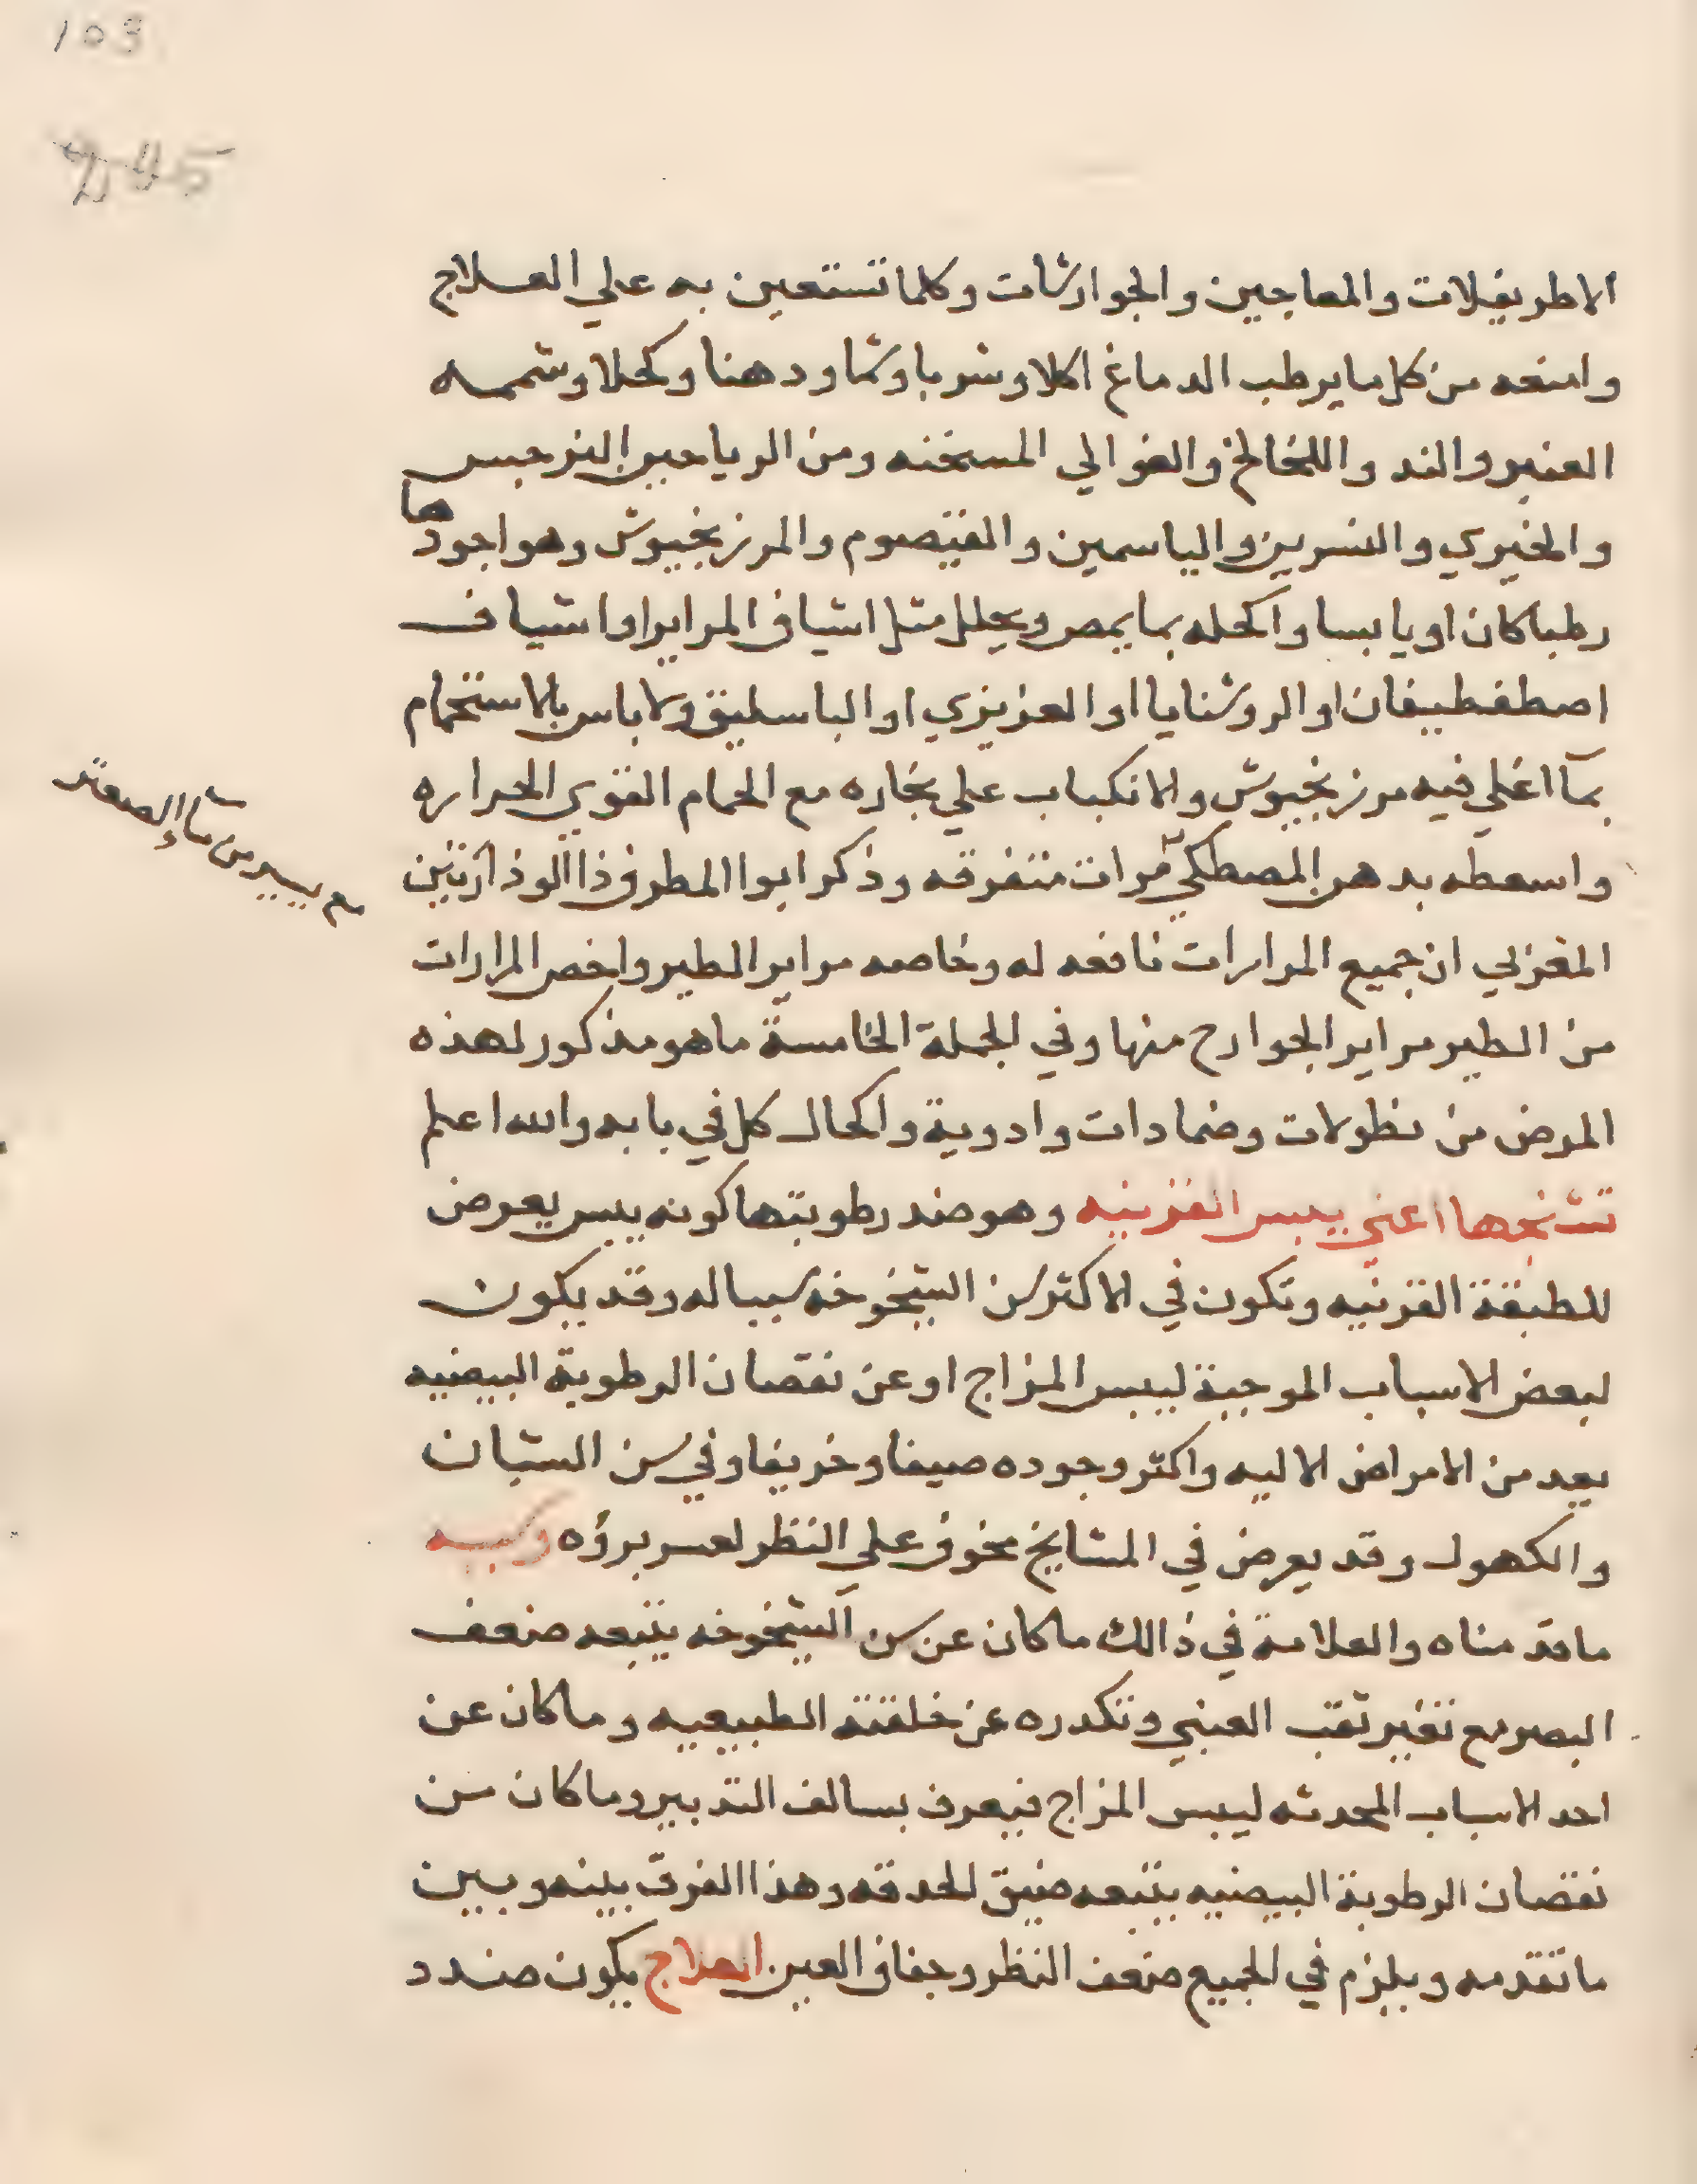 103
245
الاطريفلات والمعاجين والجوارشات وكلما تستعين به علي العلاج
وامنعه من كل ما يرطب الدماغ اكلا وشربا وشما ودهنا وكحلا وشممه
العنبر والند واللخالخ والغوالي المسخنه ومن الرياحين النرجس
والخيري والنسرين والياسمين والقيصوم والمرزنجوش وهو اجودها
رطبا كان او يابسا واكحله بما يمصر ويحلل مثل اشياف المراير او اشياف
اصطفطيفان او الروشنايا او العزيزي او الباسليق ولا باس بالاستحمام
بمآ اغلي فيه مرزنجوش والانكباب علي بخاره مع الحمام القوي الحراره
واسعطه بدهن المصطكي مرات متفرقه وذكر ابوا المطرف ذا الوذارتين
مع يسير من مآء الصعتر
المغربي ان جميع المرارات نافعه له وخاصه مراير الطير واخص المرارات
من الطير مراير الجوارح منها وفي الجملة الخامسة ما هو مذكور لهذه
المرض من نطولات وضمادات وادوية واكحال كل في بابه والله اعلم
تشنجها اعني يبس القرنيه وهو ضد رطوبتها كونه يبس يعرض
للطبقة القرنيه وتكون في الاكثر سن الشيخوخه سببا له وقد يكون
لبعض الاسباب الموجبة ليبس المزاج او عن نقصان الرطوبة البيضيه
يعد من الامراض الاليه واكثر وجوده صيفا وخريفا وفي سن الشبان
والكهول وقد يعرض في المشايخ مخوف علي النظر لعسر برؤه وسببه
ما قدمناه والعلامة في ذالك ما كان عن سن الشيخوخه يتبعه ضعف
البصر مع تغير ثقب العنبي وتكدره عن خلقته الطبيعيه وما كان عن
احد الاسباب المحدثه ليبس المزاج فيعرف بسالف التدبير وما كان من
نقصان الرطوبة البيضيه يتبعه ضيق الحدقه وهذا الفرق بينه وبين
ما تقدمه ويلزم في الجميع ضعف النظر وجفاف العين العلاج يكون ضدد